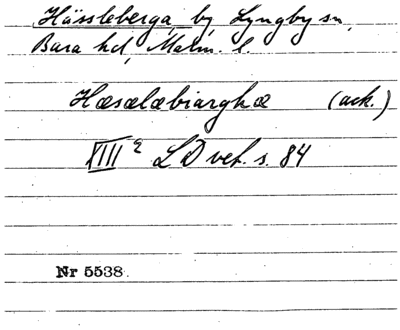 Hässleberga, by, Lyngby sn,
Bara hd, Malm. l.
Hæsælæbiarghæ (ack.)
XIII 2 LD vet. s. 84
Nr 5538